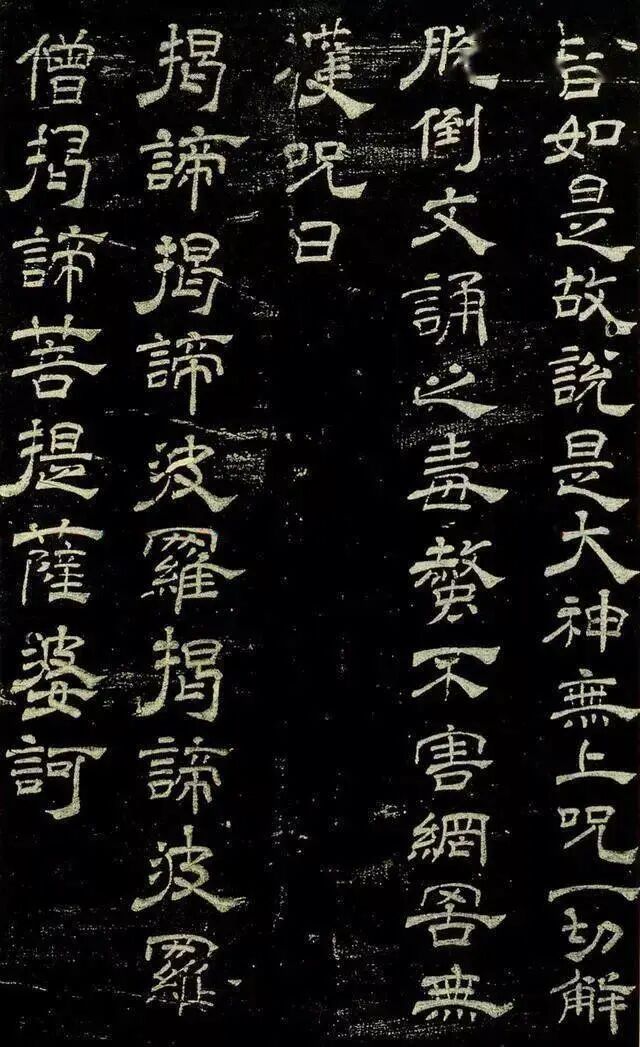 皆如是故說是大神無上呪一切解
脫倒文誦之毒螫不害網罟無
獲呪曰
揭諦揭諦波羅揭諦波羅
僧揭諦菩提薩婆訶